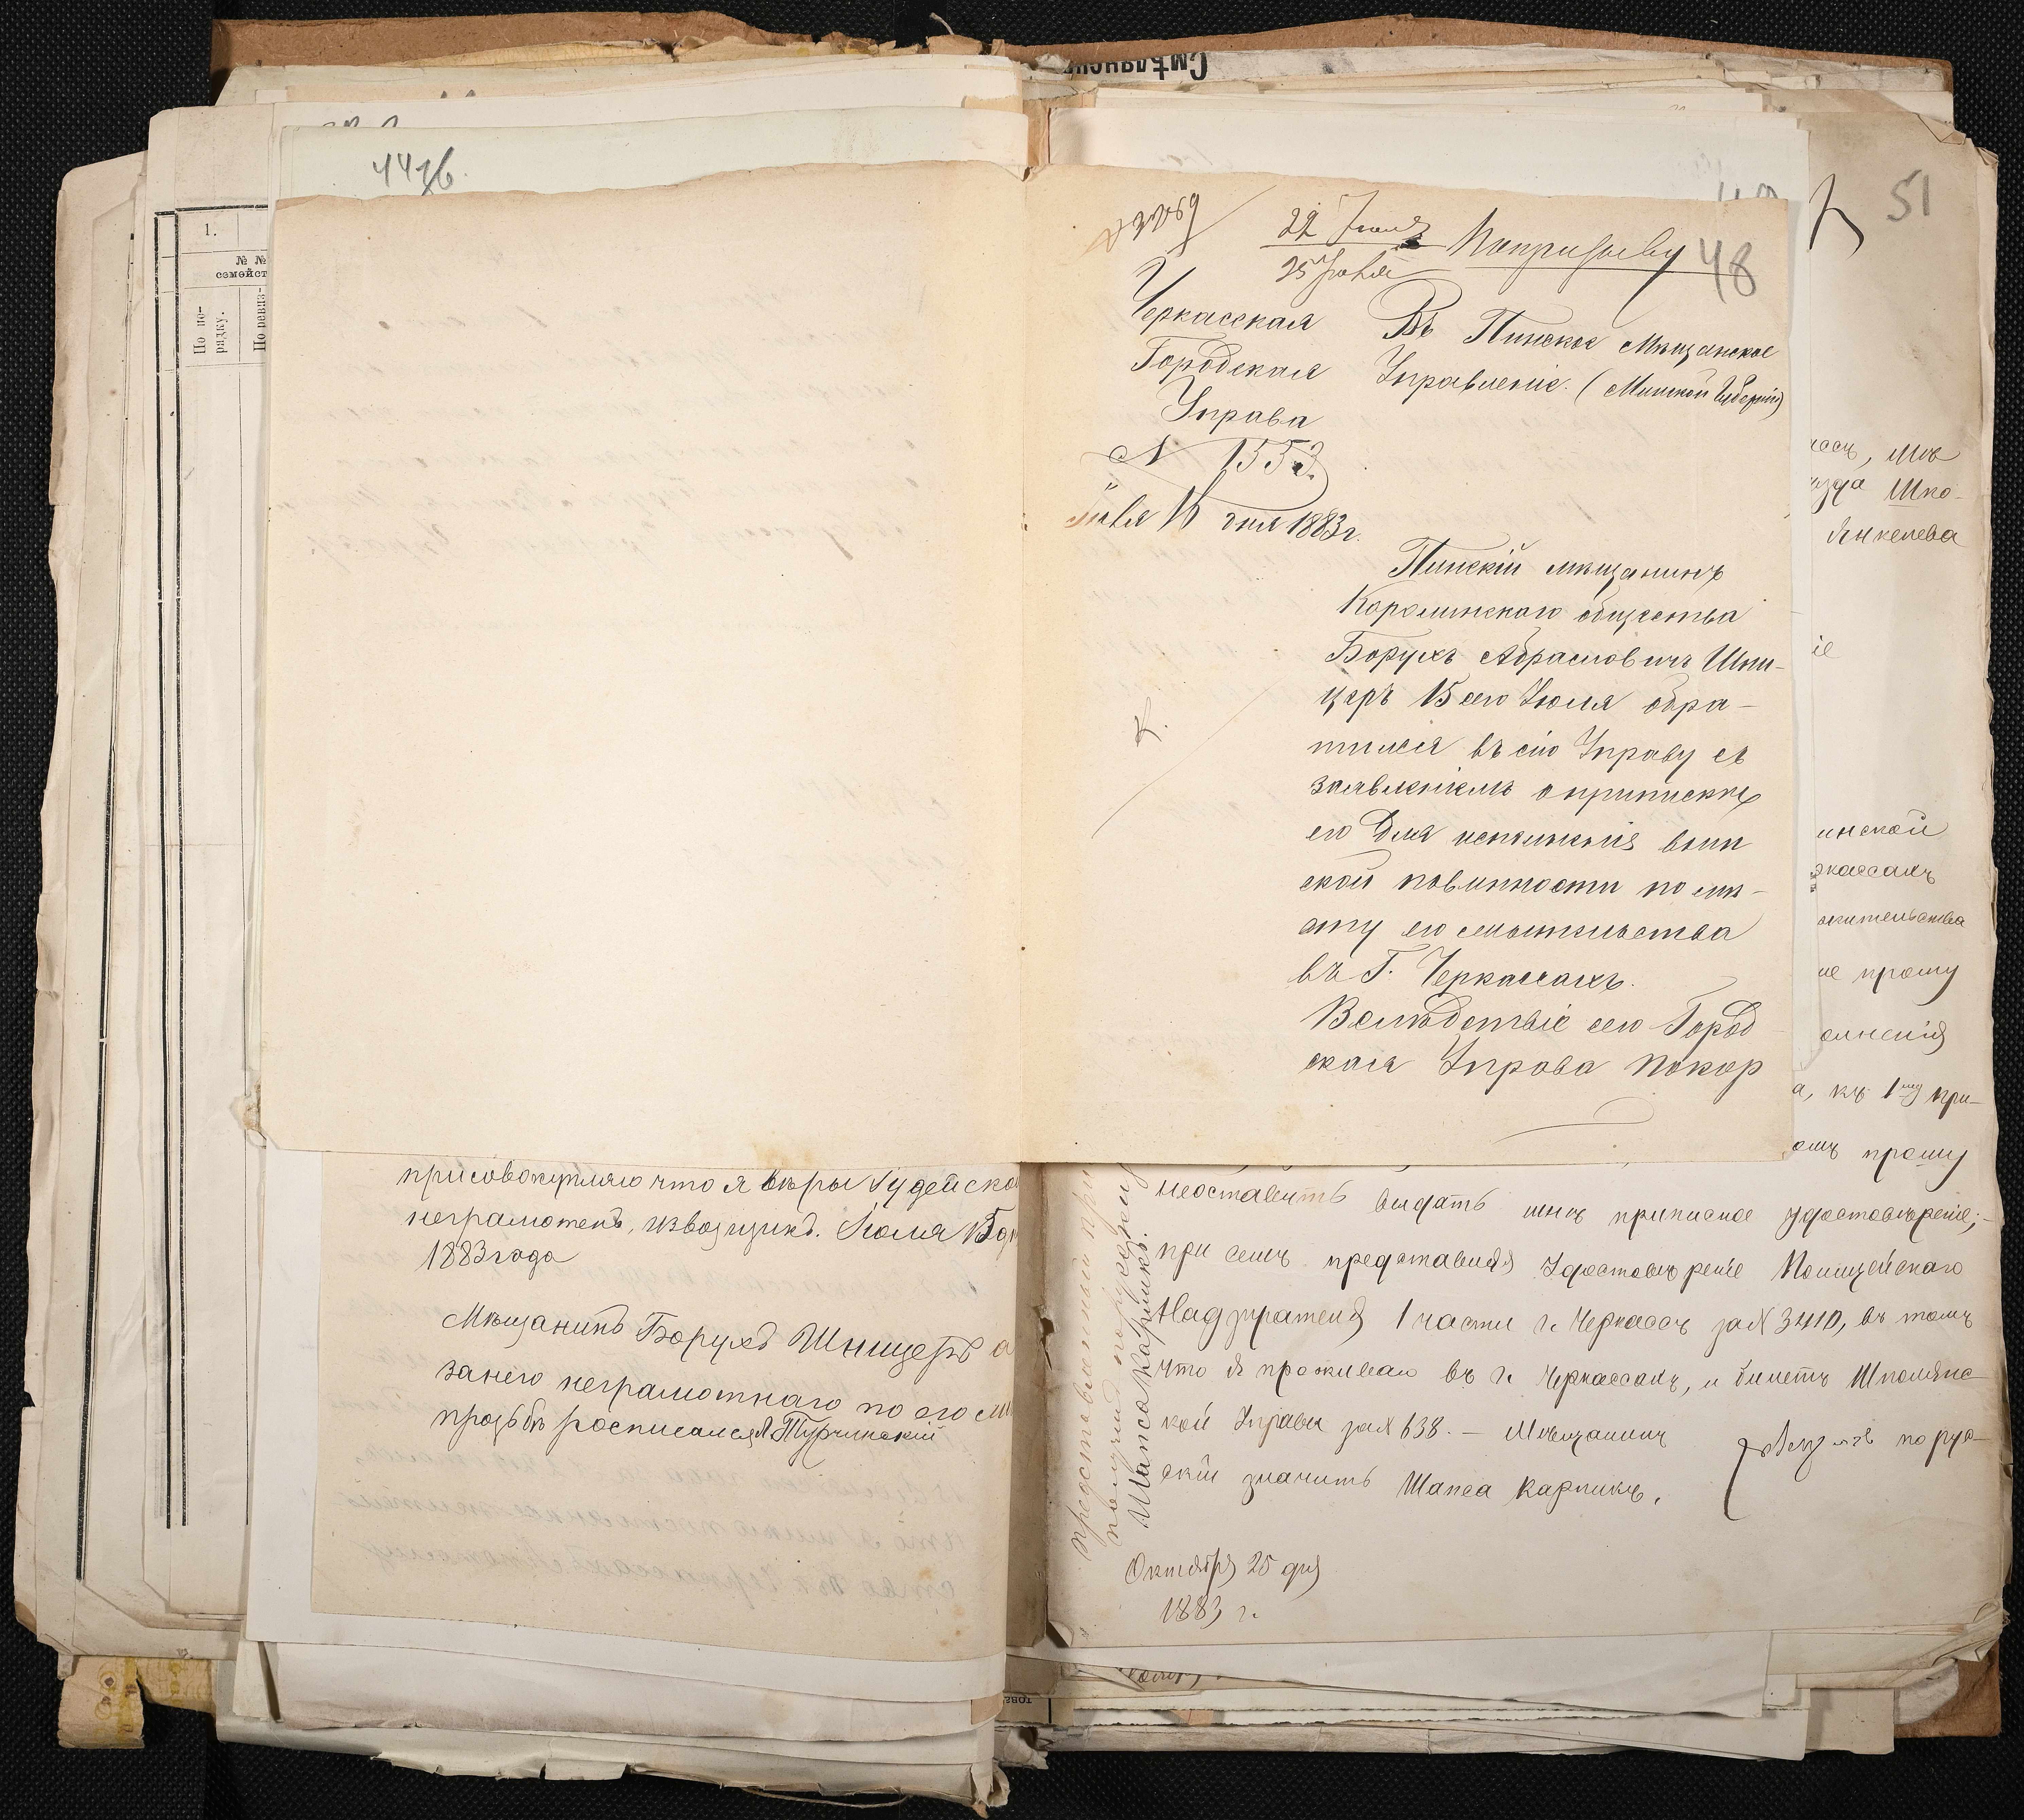 Смѣлянск
447б.
51
1.
№ №
семейст
По по-
рядку.
По ревиз-
22 Іюля
25 Іюля
По призыву
48
Черкасская
Городская
Управа
N 1553.
Іюля 16 дня 1883 г.
Въ Пинское Мѣщанское
Управленіе. (Минской Губерніи)
Пинскій мѣщанинъ
Каролинскаго общества
Борухъ Абрамовичъ Шни-
церъ 15 сего Іюля обра-
тился въ сію Управу съ
заявленіемъ о припискѣ
его для исполненія воин
ской повинности по мѣ-
сту его жительства
въ Г. Черкассахъ.
Вслѣдствіе сего Город
ская Управа покор
Шпо-
Янкелева
ие
инской
ркассахъ
жительства
ие прошу
олненія
а, къ 1му при-
омъ прошу
присовокупляю что я вѣры Іудейско
неграмотенъ, извозщикъ. Іюля 15 дн
1883 года
Мѣщанинъ Борухъ Шницеръ а
за него неграмотнаго по его
прозьбѣ росписался Турчинскій
неоставить выдать мнѣ приписное удостовѣреніе;-
при семъ представляя Удостовѣреніе Полицейскаго
Надзирателя 1 части г. Черкассъ за N 3410, въ томъ
что я проживаю въ г. Черкассахъ, и билетъ Шполянс-
кой Управы за N 638. - Мѣщанинъ
по рус-
скій значитъ Шапса Карпикъ.
Октября 25 дня
1883 г.
Шапса Карпикъ.